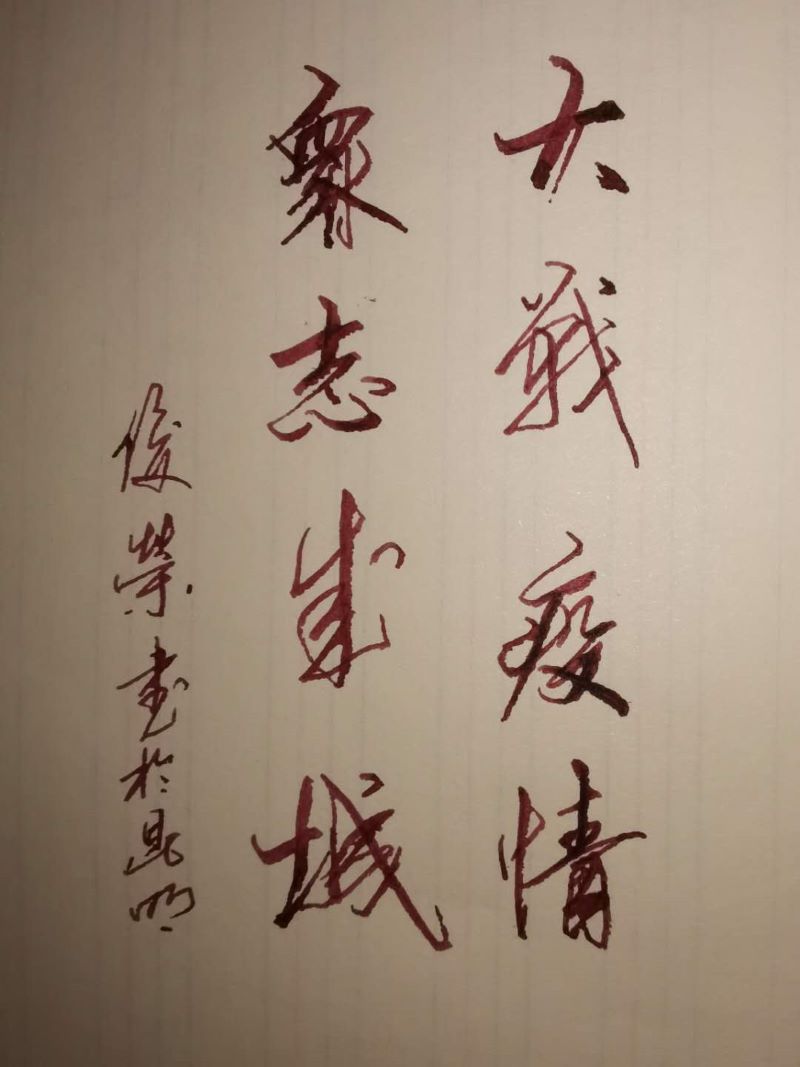 大戰疫情
衆志成城
俊榮書於昆明